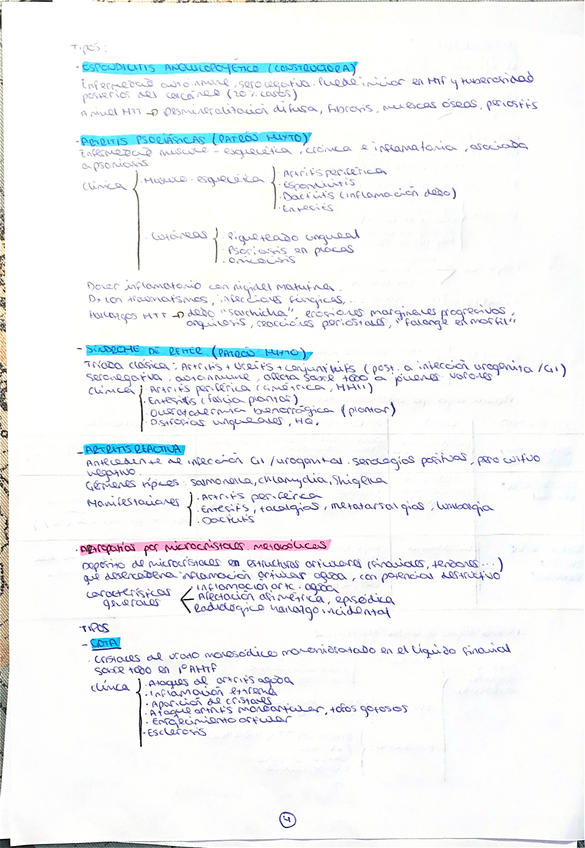 TIPOS:
- ESPONDILITIS ANQUILOPOYÉTICA (CONSTRUCTORA)
Enfermedad autoinmune, seronegativa. Puede iniciar en MTF y tuberosidad
posterior del calcáneo (20% casos)
A nivel MTT → Desmineralización difusa, fibrosis, muescas óseas, periostitis
- ARTRITIS PSORIÁSICAS (PATRÓN MIXTO)
Enfermedad músculo-esquelética, crónica e inflamatoria, asociada
a psoriasis
Clínica
· Músculo-esquelética
· Artritis periférica
· Espondilitis
· Dactilitis (inflamación dedo)
· Entesitis
· Cutáneas
· Piqueteado ungueal
· Psoriasis en placas
· Onicolisis
Dolor inflamatorio con rigidez matutina.
Dx con traumatismos, infecciones fúngicas...
Hallazgos MTT → dedo "salchicha", erosiones marginales progresivas,
anquilosis, reacciones periostales, "falange en marfil"
- SÍNDROME DE REITER (PATRÓN MIXTO)
Triada clásica: Artritis + Uretritis + conjuntivitis (post. a infección urogenital/GI)
Seronegativa, autoinmune, afecta sobre todo a jóvenes varones
Clínica
· Artritis periférica (simétrica, MMII)
· Entesitis (fascia plantar)
· Queratodermia blenorrágica (plantar)
· Distrofias ungueales, HQ.
- ARTRITIS REACTIVA
Antecedente de infección GI/urogenital. Serologías positivas, pero cultivo
negativo.
Gérmenes típicos: salmonella, chlamydia, Shigella
Manifestaciones
· Artritis periférica
· Entesitis, talalgias, metatarsalgias, lumbalgia
· Dactilitis
· Artropatías por microcristales metabólicos
Depósito de microcristales en estructuras articulares (sinoviales, tendones...)
que desencadena inflamación articular aguda, con potencial destructivo
características
generales
Inflamación artc. aguda
Afectación asimétrica, episódica
Radiológico hallazgo incidental
TIPOS
- GOTA
· Cristales de urato monosódico monohidratado en el líquido sinovial
sobre todo en 1ª AMTF
Clínica
· Ataques de artritis aguda
· Inflamación extrema
· Aparición de cristales
· Ataque artritis monoarticular, tofos gotosos
· Enrojecimiento articular
· Esclerosis
4